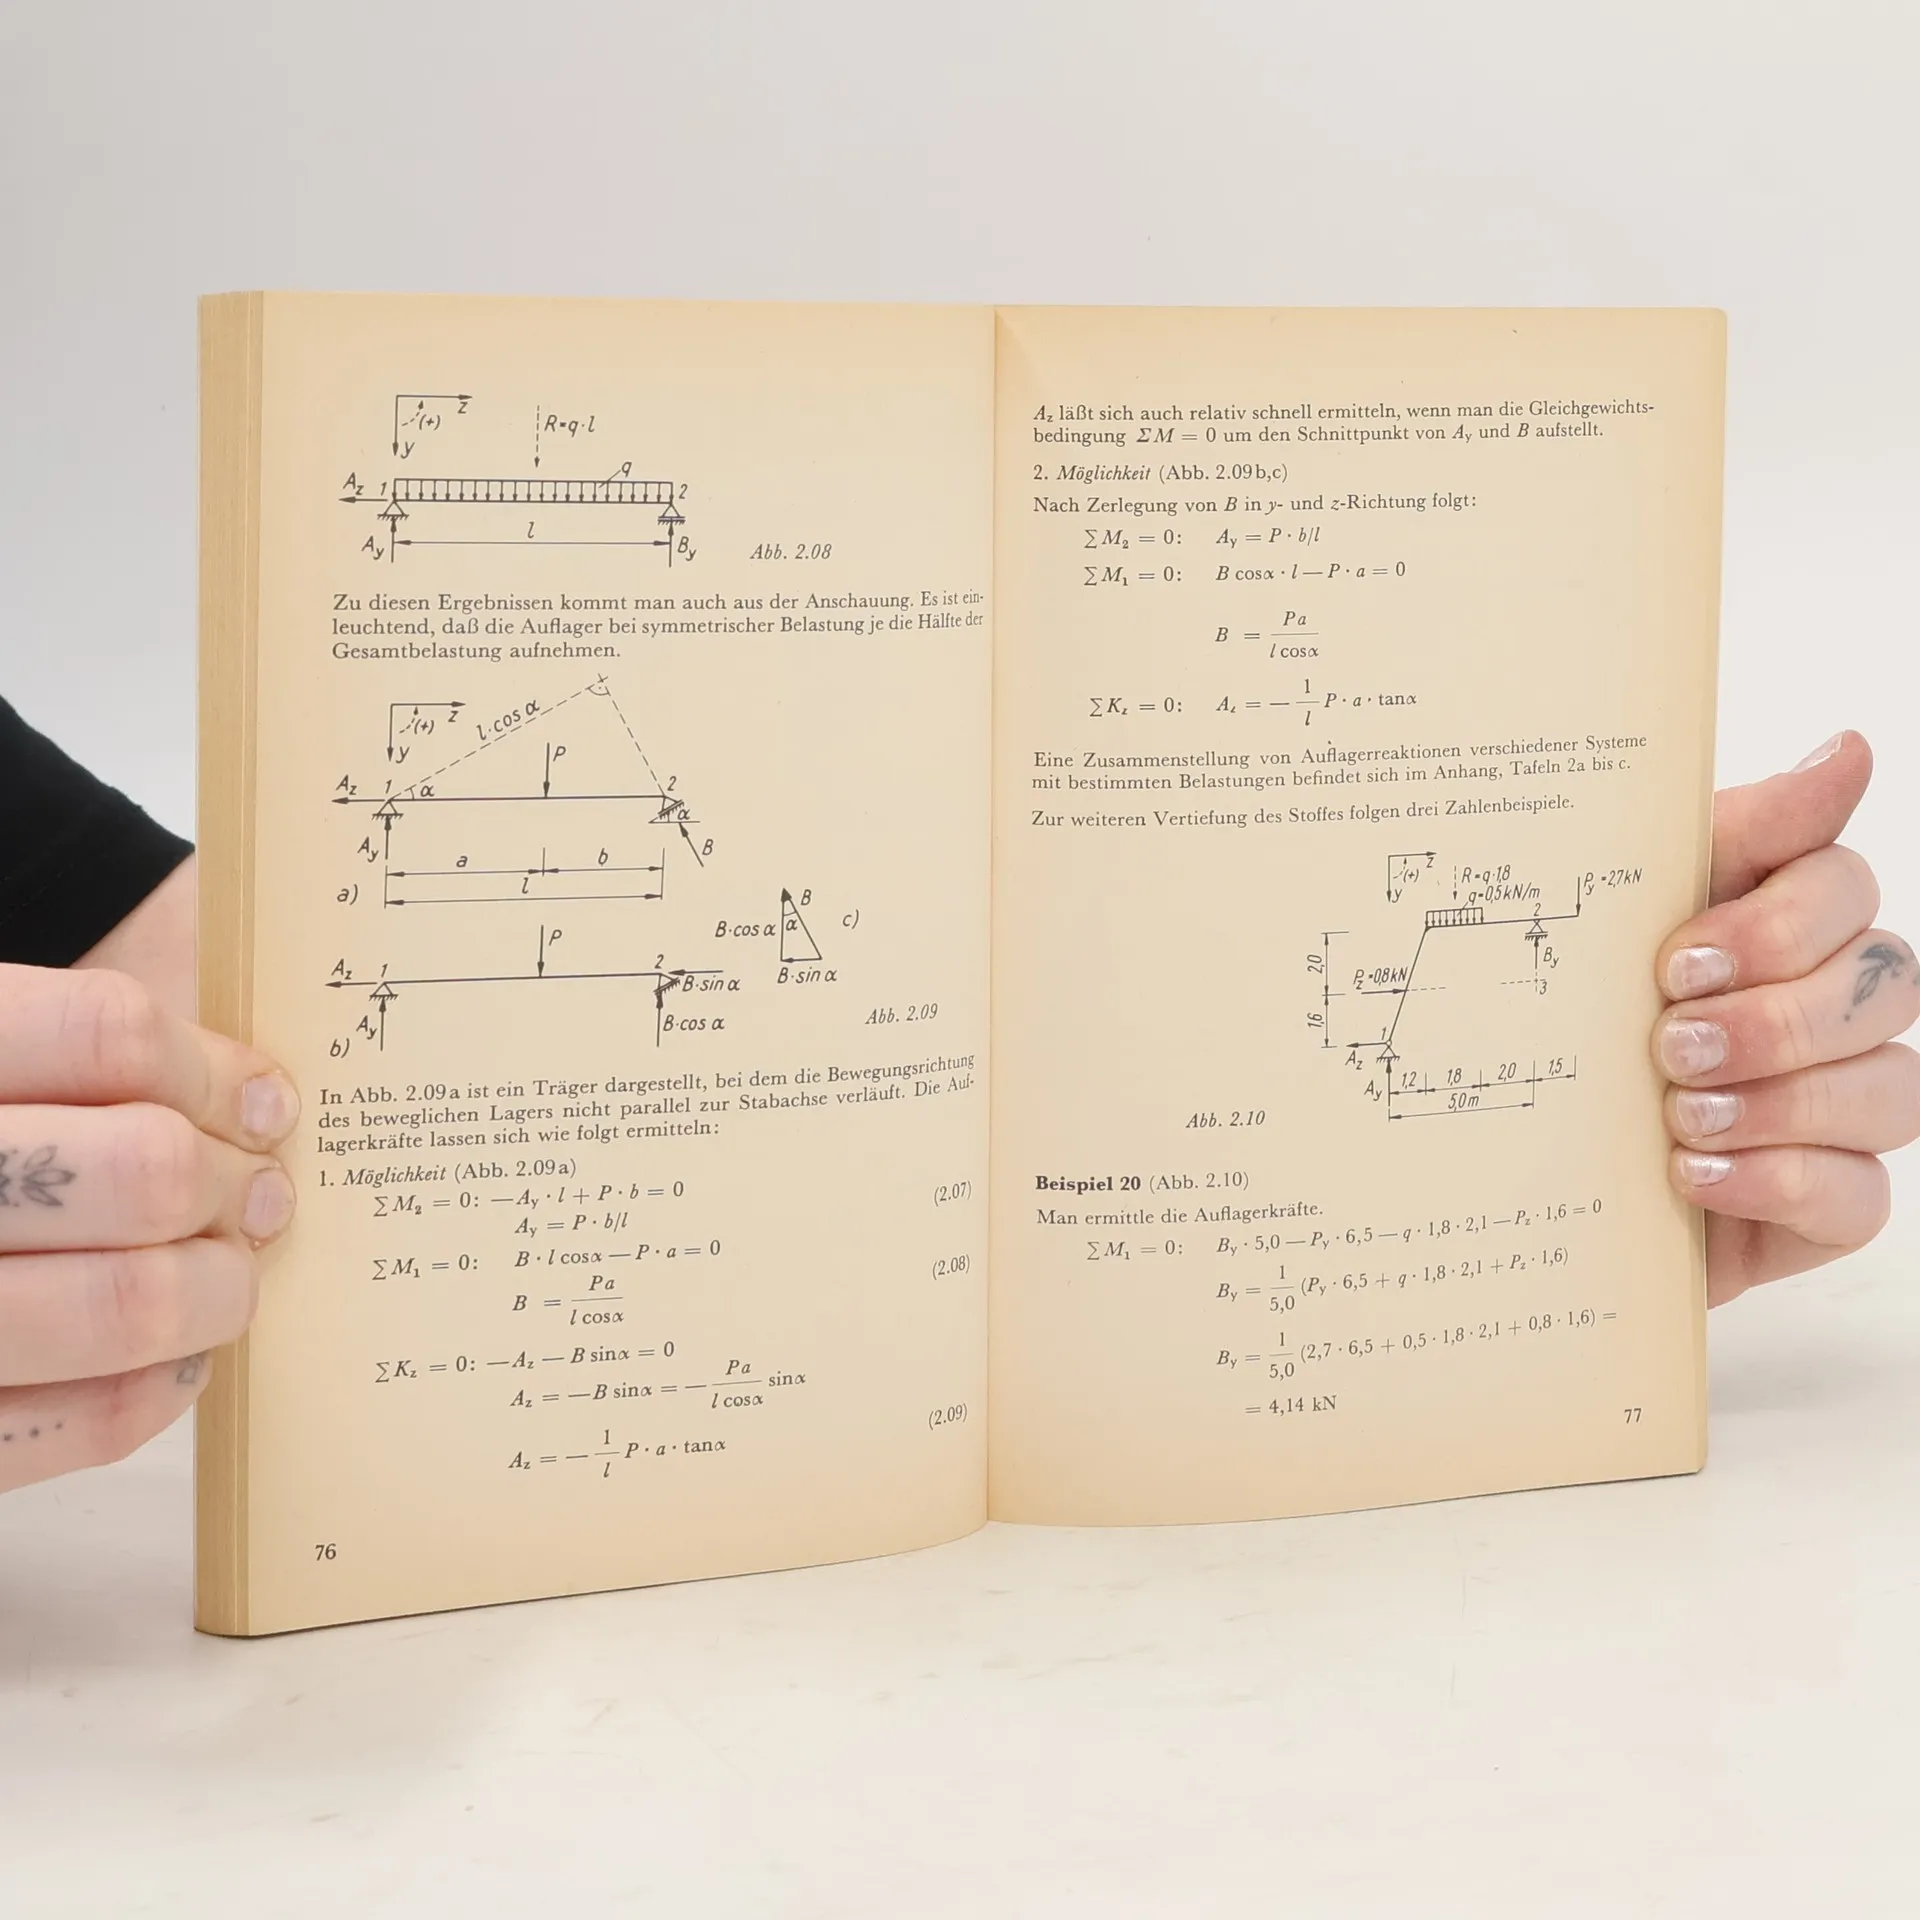 z
(+)
y
R=q·l
q
A_z 1
2
l
A_y
B_y
Abb. 2.08
Zu diesen Ergebnissen kommt man auch aus der Anschauung. Es ist ein-
leuchtend, daß die Auflager bei symmetrischer Belastung je die Hälfte der
Gesamtbelastung aufnehmen.
l·cos α
z
(+)
y
P
A_z 1 α
2
α
A_y
B
a b
l
a)
P
B
B·cos α α c)
B·sin α
A_z 1
2
B·sin α
A_y
B·cos α
b)
Abb. 2.09
In Abb. 2.09a ist ein Träger dargestellt, bei dem die Bewegungsrichtung
des beweglichen Lagers nicht parallel zur Stabachse verläuft. Die Auf-
lagerkräfte lassen sich wie folgt ermitteln:
1. Möglichkeit (Abb. 2.09a)
∑M₂ = 0: —A_y · l + P · b = 0 (2.07)
A_y = P · b/l
∑M₁ = 0: B · l cosα — P · a = 0 (2.08)
B = Pa / l cosα
∑K_z = 0: —A_z — B sinα = 0
A_z = —B sinα = — Pa / l cosα sinα
(2.09)
A_z = — 1/l P · a · tanα
76
A_z läßt sich auch relativ schnell ermitteln, wenn man die Gleichgewichts-
bedingung ΣM = 0 um den Schnittpunkt von A_y und B aufstellt.
2. Möglichkeit (Abb. 2.09b,c)
Nach Zerlegung von B in y- und z-Richtung folgt:
∑M₂ = 0: A_y = P · b/l
∑M₁ = 0: B cosα · l — P · a = 0
B = Pa / l cosα
∑K_z = 0: A_z = — 1/l P · a · tanα
Eine Zusammenstellung von Auflagerreaktionen verschiedener Systeme
mit bestimmten Belastungen befindet sich im Anhang, Tafeln 2a bis c.
Zur weiteren Vertiefung des Stoffes folgen drei Zahlenbeispiele.
z
(+)
y
R=q·1,8
q=0,5kN/m
P_y=2,7kN
2
B_y
2,0
P_z=0,8kN
3
1,6
1
A_z
A_y
1,2 1,8 2,0 1,5
5,0m
Abb. 2.10
Beispiel 20 (Abb. 2.10)
Man ermittle die Auflagerkräfte.
∑M₁ = 0: B_y · 5,0 — P_y · 6,5 — q · 1,8 · 2,1 — P_z · 1,6 = 0
B_y = 1/5,0 (P_y · 6,5 + q · 1,8 · 2,1 + P_z · 1,6)
B_y = 1/5,0 (2,7 · 6,5 + 0,5 · 1,8 · 2,1 + 0,8 · 1,6) =
= 4,14 kN
77